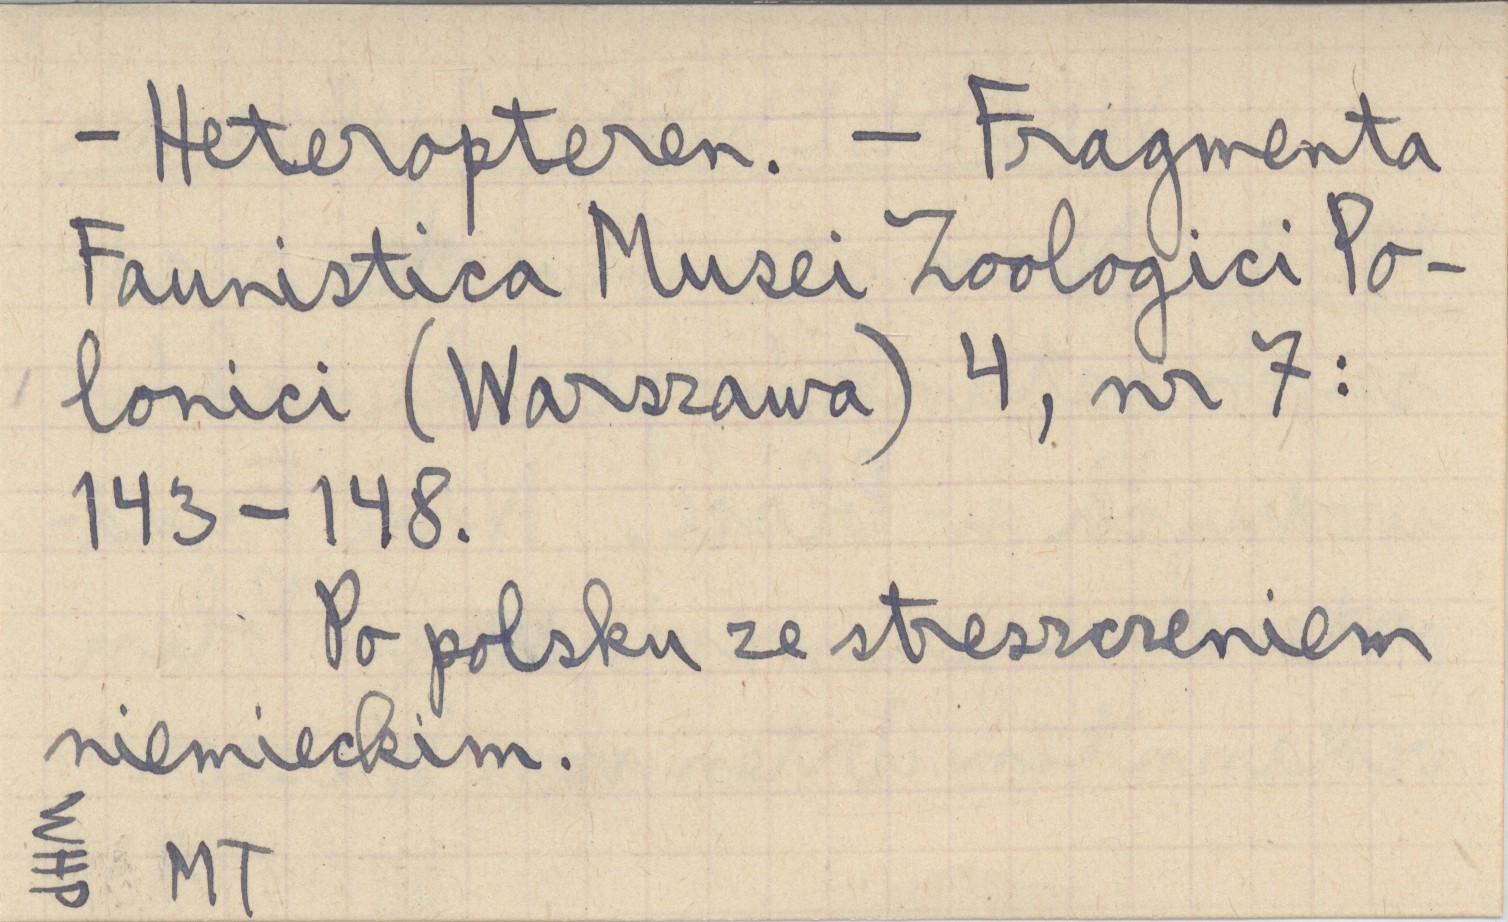 - Heteropteren. - Fragmenta
Faunistica Musei Zoologici Po-
lonici (Warszawa) 4, nr 7:
143-148.
Po polsku ze streszczeniem
niemieckim.
WHP
MT